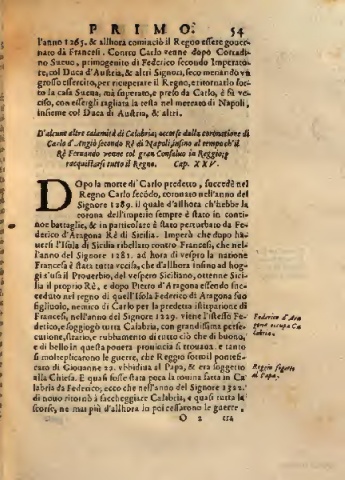 PRIMO. 54
l'anno 1265. & allhora cominciò il Regno essere gouer-
nato da Francesi. Contra Carlo venne dopo Corradi-
no Sueuo, primogenito di Federico secondo Imperato-
re, col Duca d'Austria, & altri Signori, seco menando vn
grosso essercito, per ricuperare il Regno, e ritornarlo sot-
to la casa Sueua, mà superato, e preso da Carlo, è stà vc-
ciso, con essergli tagliata la testa nel mercato di Napoli,
insieme col Duca di Austria, & altri.
D'alcune altre calamità di Calabria; accorse dalla coronatione di
Carlo d'Angiò secondo Rè di Napoli, insino al tempo ch'il
Rè Fernando venne col gran Consaluo in Reggio; e
racquistarsi tutto il Regno. Cap. XXV.
DOpo la morte di Carlo predetto, succedè nel
Regno Carlo secōdo, coronato nell'anno del
Signore 1289. il quale d'allhora ch'hebbe la
corona dell'imperio sempre è stato in conti-
noe battaglie, & in particolare è stato perturbato da Fe-
derico d'Aragona Rè di Sicilia. Imperò che dopò ha-
uersi l'Isola di Sicilia ribellato contro Francesi, che nel-
l'anno del Signore 1281. ad hora di vespro la natione
Francesa è stata tutta vccisa, che d'allhora insino ad hog-
gi s'usa il Prouerbio, del vespero Siciliano, ottenne Sici-
lia il proprio Rè, e dopò Pietro d'Aragona essendo suc-
ceduto nel regno di quell'Isola Federico di Aragona suo
figliuolo, nemico di Carlo per la predetta estirpatione di
Francesi, nell'anno del Signore 1229. viene l'istesso Fe-
derico, e soggiogò tutta Calabria, con grandissima perse-
cutione, stratio, e rubbamento di tutto ciò che di buono,
e di bello in questa pouera prouincia si trouaua. e tanto
si moltiplicarono le guerre, che Reggio sotto il pontefi-
cato di Giouanne 22. vbbidiua al Papa, & era soggetto
alla Chiesa. E quasi fosse stata poca la rouina fatta in Ca-
labria da Federico; ecco che nell'anno del Signore 1322.
di nouo ritornò à saccheggiare Calabria, e quasi tutta la
scorse, ne mai più d'allhora lo poi cessarono le guerre,
Federico d'Ara
gona occupa Ca
labria.
Reggio soggetto
al Papa.
O 2